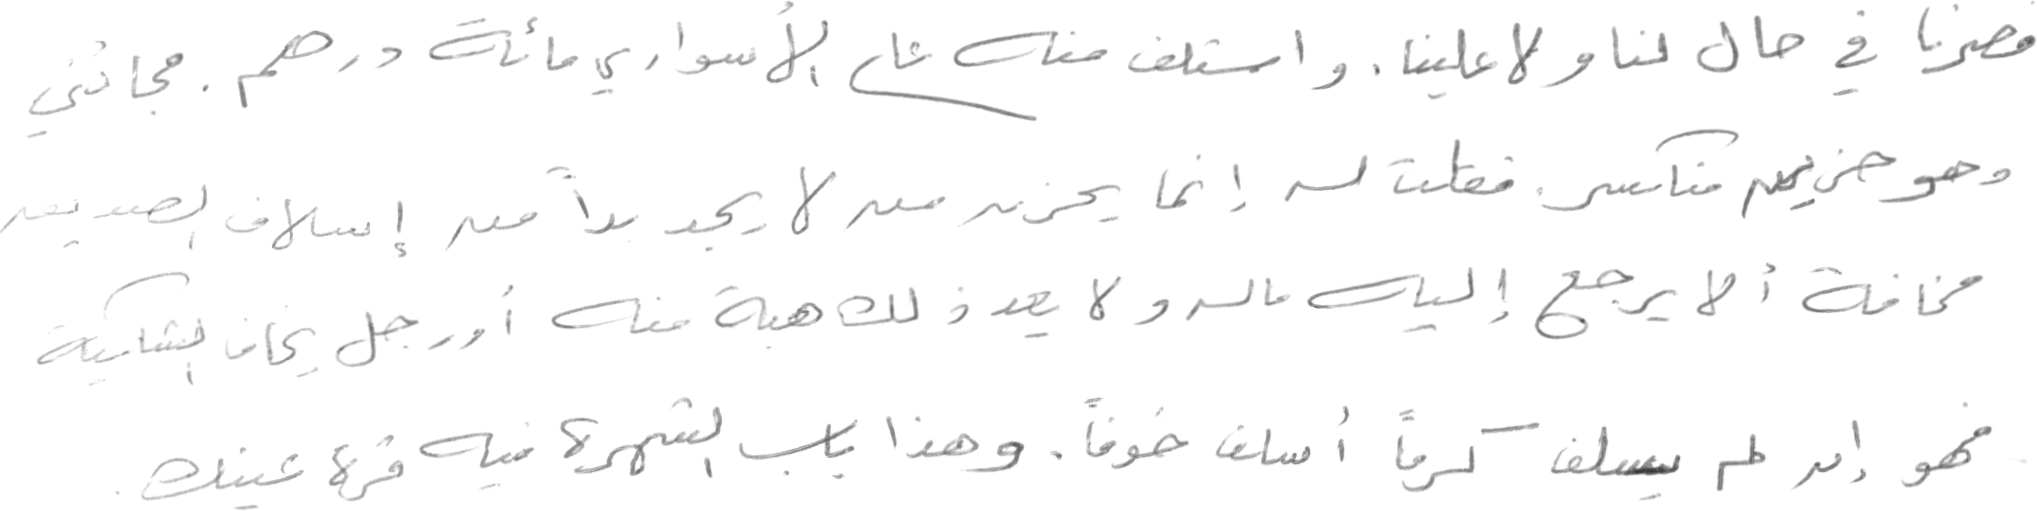 فصرنا في حال لنا ولا علينا. واستلف منه علي الأسواري مائة درهم. فجائني
وهو حزين منكسر. فقلت له إنما يحزن من لا يجد بداً من إسلاف الصديق
مخافة ألا يرجع إليه ماله ولا يعد ذلك هبة منه أو رجل يخاف الشكية
فهو إن لم يسلف كرماً أسلف خوفاً. وهذا باب الشهرة فيه قرة عينك.